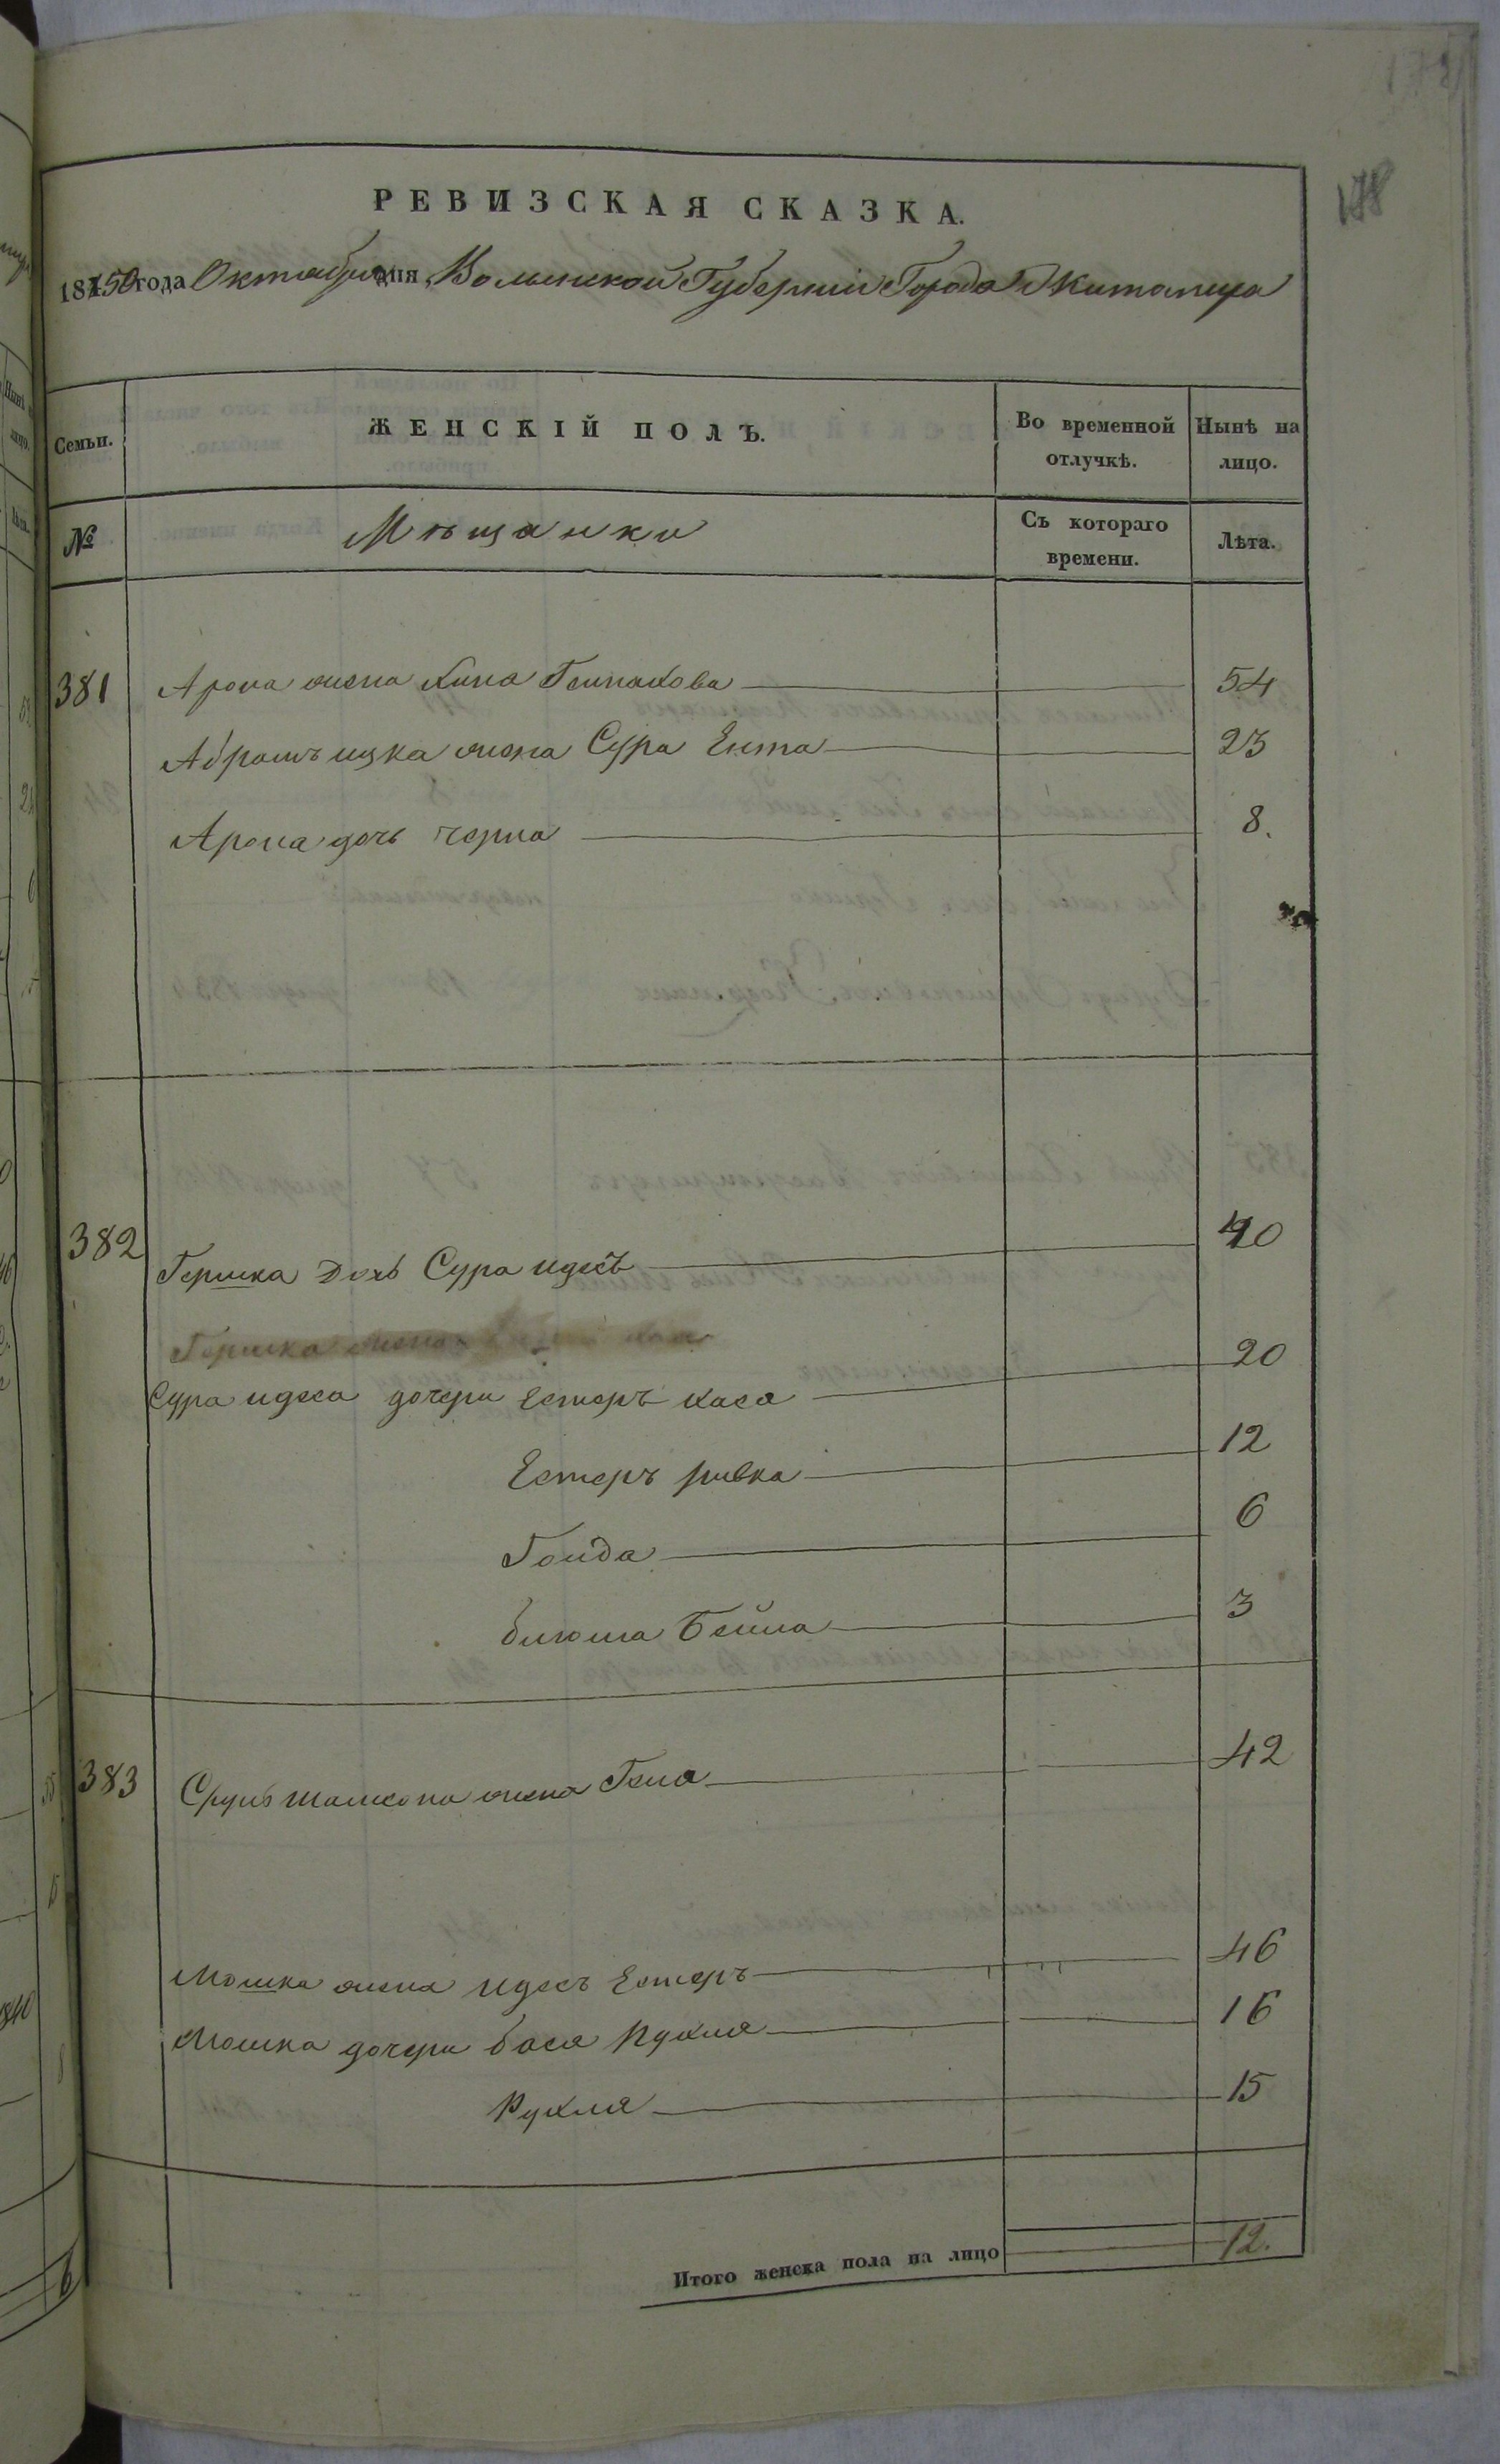 178
РЕВИЗСКАЯ СКАЗКА.
1850 года Октября дня Волынской Губерніи Города Житомира
Семьи.
ЖЕНСКІЙ ПОЛЪ.
Во временной отлучкѣ.
Нынѣ на лицо.
№
Мѣщанки
Съ котораго времени.
Лѣта.
381 Арона жена Хина 54
Абрамъ ицка жена Сура Ента 23
Арона дочь черна 8.
382 Гершка Дочь Сура идесъ 40
Гершка жена
Сура идеса дочери Естеръ хася 20
Естеръ ривка 12
Гольда 6
блюма Бейла 3
383 Сруль жена Геня 42
Мошка жена идесъ Естеръ 46
Мошка дочери бася Рухля 16
Рухля 15
Итого женска пола на лицо 12.